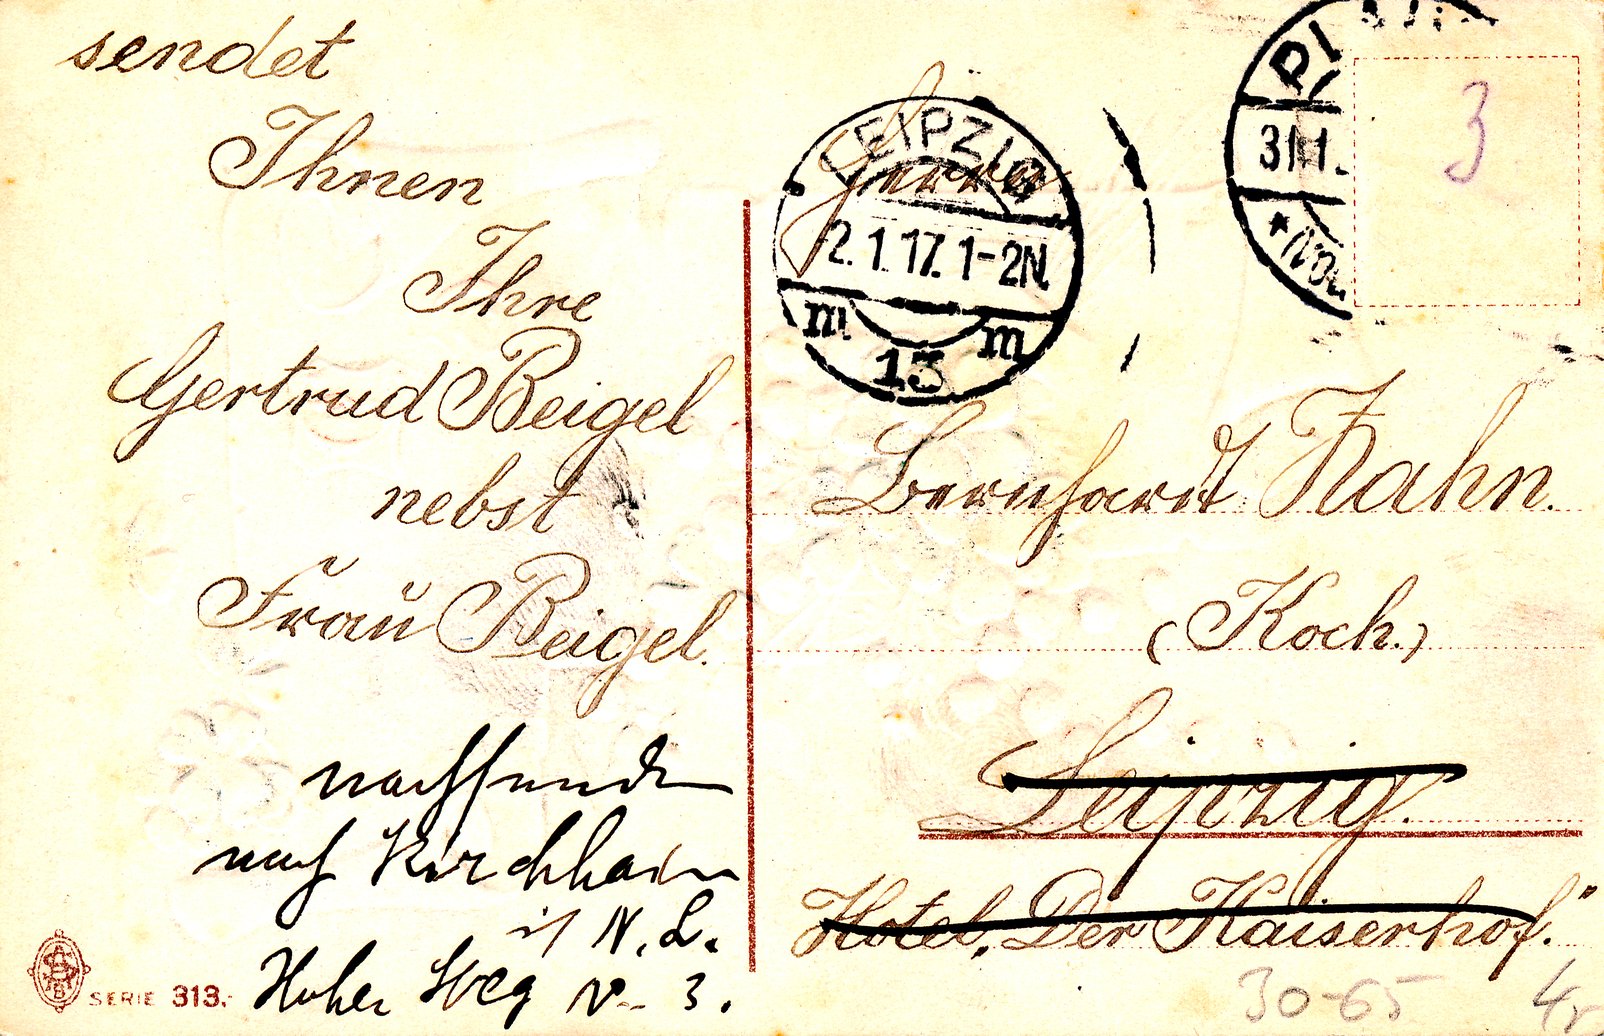 sendet
Ihnen
Ihre
Gertrud Beigel
nebst
Frau Beigel.
nachsenden
nach Kirchhain
i/ N. L.
Hoher Weg No 3.
SERIE 313.
LEIPZIG
2.1.17. 1-2N.
m m
13
31.1.
3
Herrn
Bernhardt Hahn.
(Koch.)
Leipzig.
Hotel, "Der Kaiserhof."
30-65